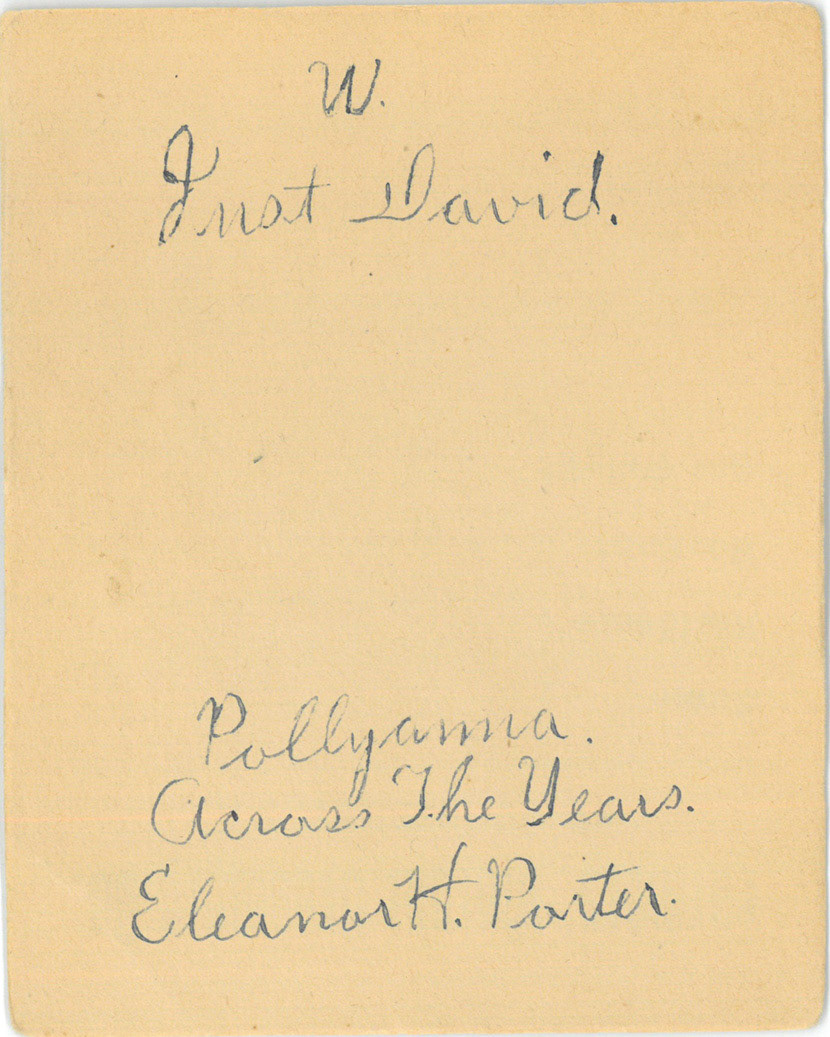 W.
Just David.
Pollyanna.
Across The Years.
Eleanor H. Porter.